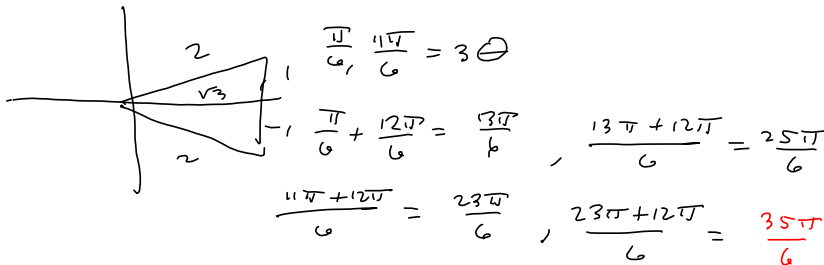 2
1
√3
-1
2
π/6, 11π/6 = 3θ
π/6 + 12π/6 = 13π/6 , (13π + 12π)/6 = 25π/6
(11π + 12π)/6 = 23π/6 , (23π + 12π)/6 = 35π/6